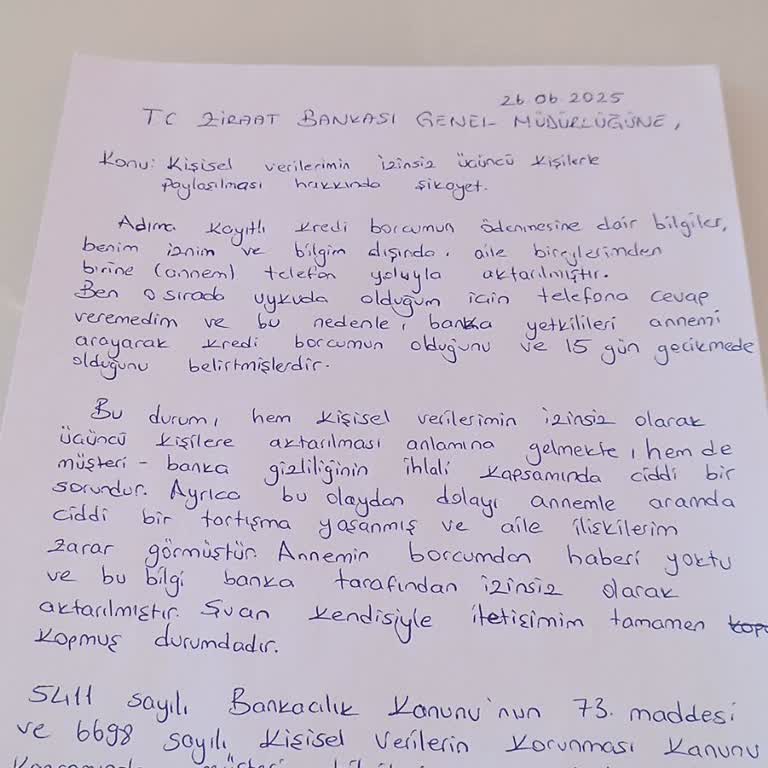 26.06.2025
TC ZİRAAT BANKASI GENEL MÜDÜRLÜĞÜNE,
Konu: Kişisel verilerimin izinsiz üçüncü kişilerle
paylaşılması hakkında şikayet.
Adıma kayıtlı kredi borcumun ödenmesine dair bilgiler,
benim iznim ve bilgim dışında, aile bireylerimden
birine (annem) telefon yoluyla aktarılmıştır.
Ben o sırada uykuda olduğum için telefona cevap
veremedim ve bu nedenle, banka yetkilileri annemi
arayarak kredi borcumun olduğunu ve 15 gün gecikmede
olduğunu belirtmişlerdir.
Bu durum, hem kişisel verilerimin izinsiz olarak
üçüncü kişilere aktarılması anlamına gelmekte, hem de
müşteri - banka gizliliğinin ihlali kapsamında ciddi bir
sorundur. Ayrıca bu olaydan dolayı annemle aramda
ciddi bir tartışma yaşanmış ve aile ilişkilerim
zarar görmüştür. Annemin borcumdan haberi yoktu
ve bu bilgi banka tarafından izinsiz olarak
aktarılmıştır. Şuan kendisiyle iletişimim tamamen
kopmuş durumdadır.
5411 sayılı Bankacılık Kanunu'nun 73. maddesi
ve 6698 sayılı Kişisel Verilerin Korunması Kanunu